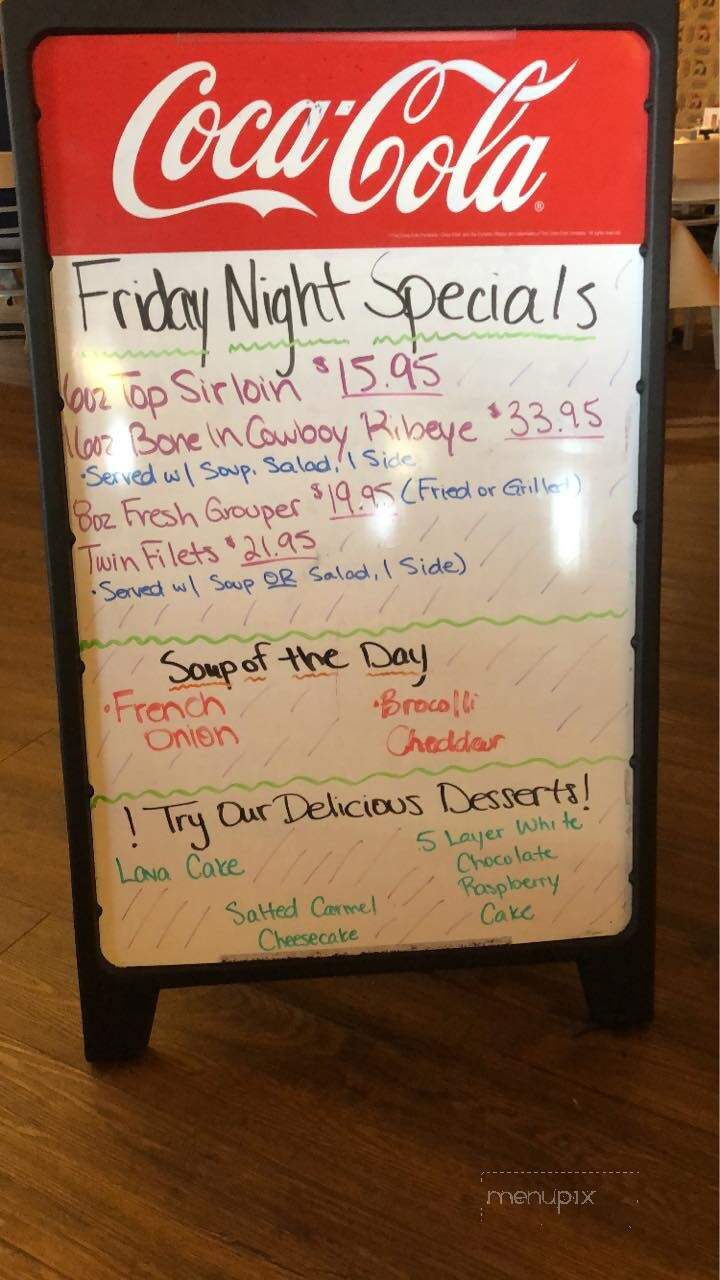 Coca-Cola
Friday Night Specials
6oz Top Sirloin $15.95
16oz Bone In Cowboy Ribeye $33.95
•Served w/ Soup, Salad, 1 Side
8oz Fresh Grouper $19.95 (Fried or Grilled)
Twin Filets $21.95
•Served w/ Soup OR Salad, 1 Side)
Soup of the Day
•French Onion
•Brocolli Cheddar
! Try Our Delicious Desserts!
Lava Cake
5 Layer White Chocolate Raspberry Cake
Salted Carmel Cheesecake
menupix